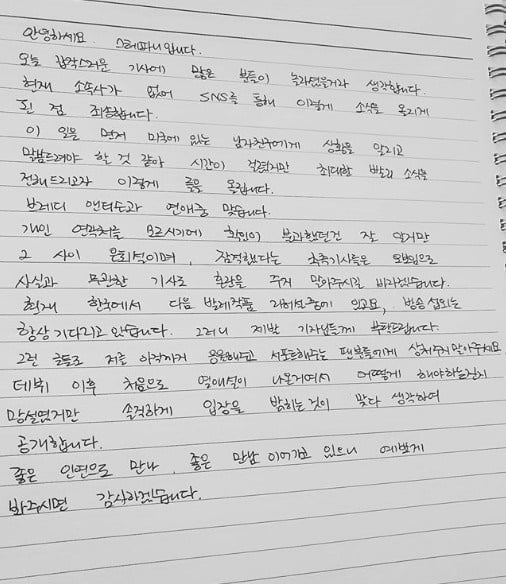 안녕하세요. 스테파니입니다.
오늘 갑작스러운 기사에 많은 분들이 놀라셨을거라 생각합니다.
현재 소속사가 없어 SNS를 통해 이렇게 소식을 올리게
된 점 죄송합니다.
이 일을 먼저 미국에 있는 남자친구에게 상황을 알리고
말씀드려야 할 것 같아 시간이 걸렸지만 최대한 빨리 소식을
전해드리고자 이렇게 글을 올립니다.
브래디 앤더슨과 연애중 맞습니다.
개인 연락처를 모르시기에 확인이 불과했던건 잘 알지만
그 사이 문의없이며, 잠적했다는 추측기사들은
사실과 무관한 기사로 혼란을 주지 말아주시길 바라겠습니다.
현재 한국에서 다음 발레작품 리허설중에 있고요, 방송 섭외는
항상 기다리고 있습니다. 그러니 제발 기자님들께 부탁드립니다.
그런 글들로 저를 아직까지 응원해주고 서포트해주는 팬분들에게 상처주지 말아주세요.
데뷔 이후 처음으로 열애설이 나온거여서 어떻게 해야하는건지
망설였지만 솔직하게 입장을 밝히는것이 맞다 생각하여
공개합니다.
좋은 인연으로 만나, 좋은 만남 이어가고 있으니 예쁘게
봐주시면 감사하겠습니다.